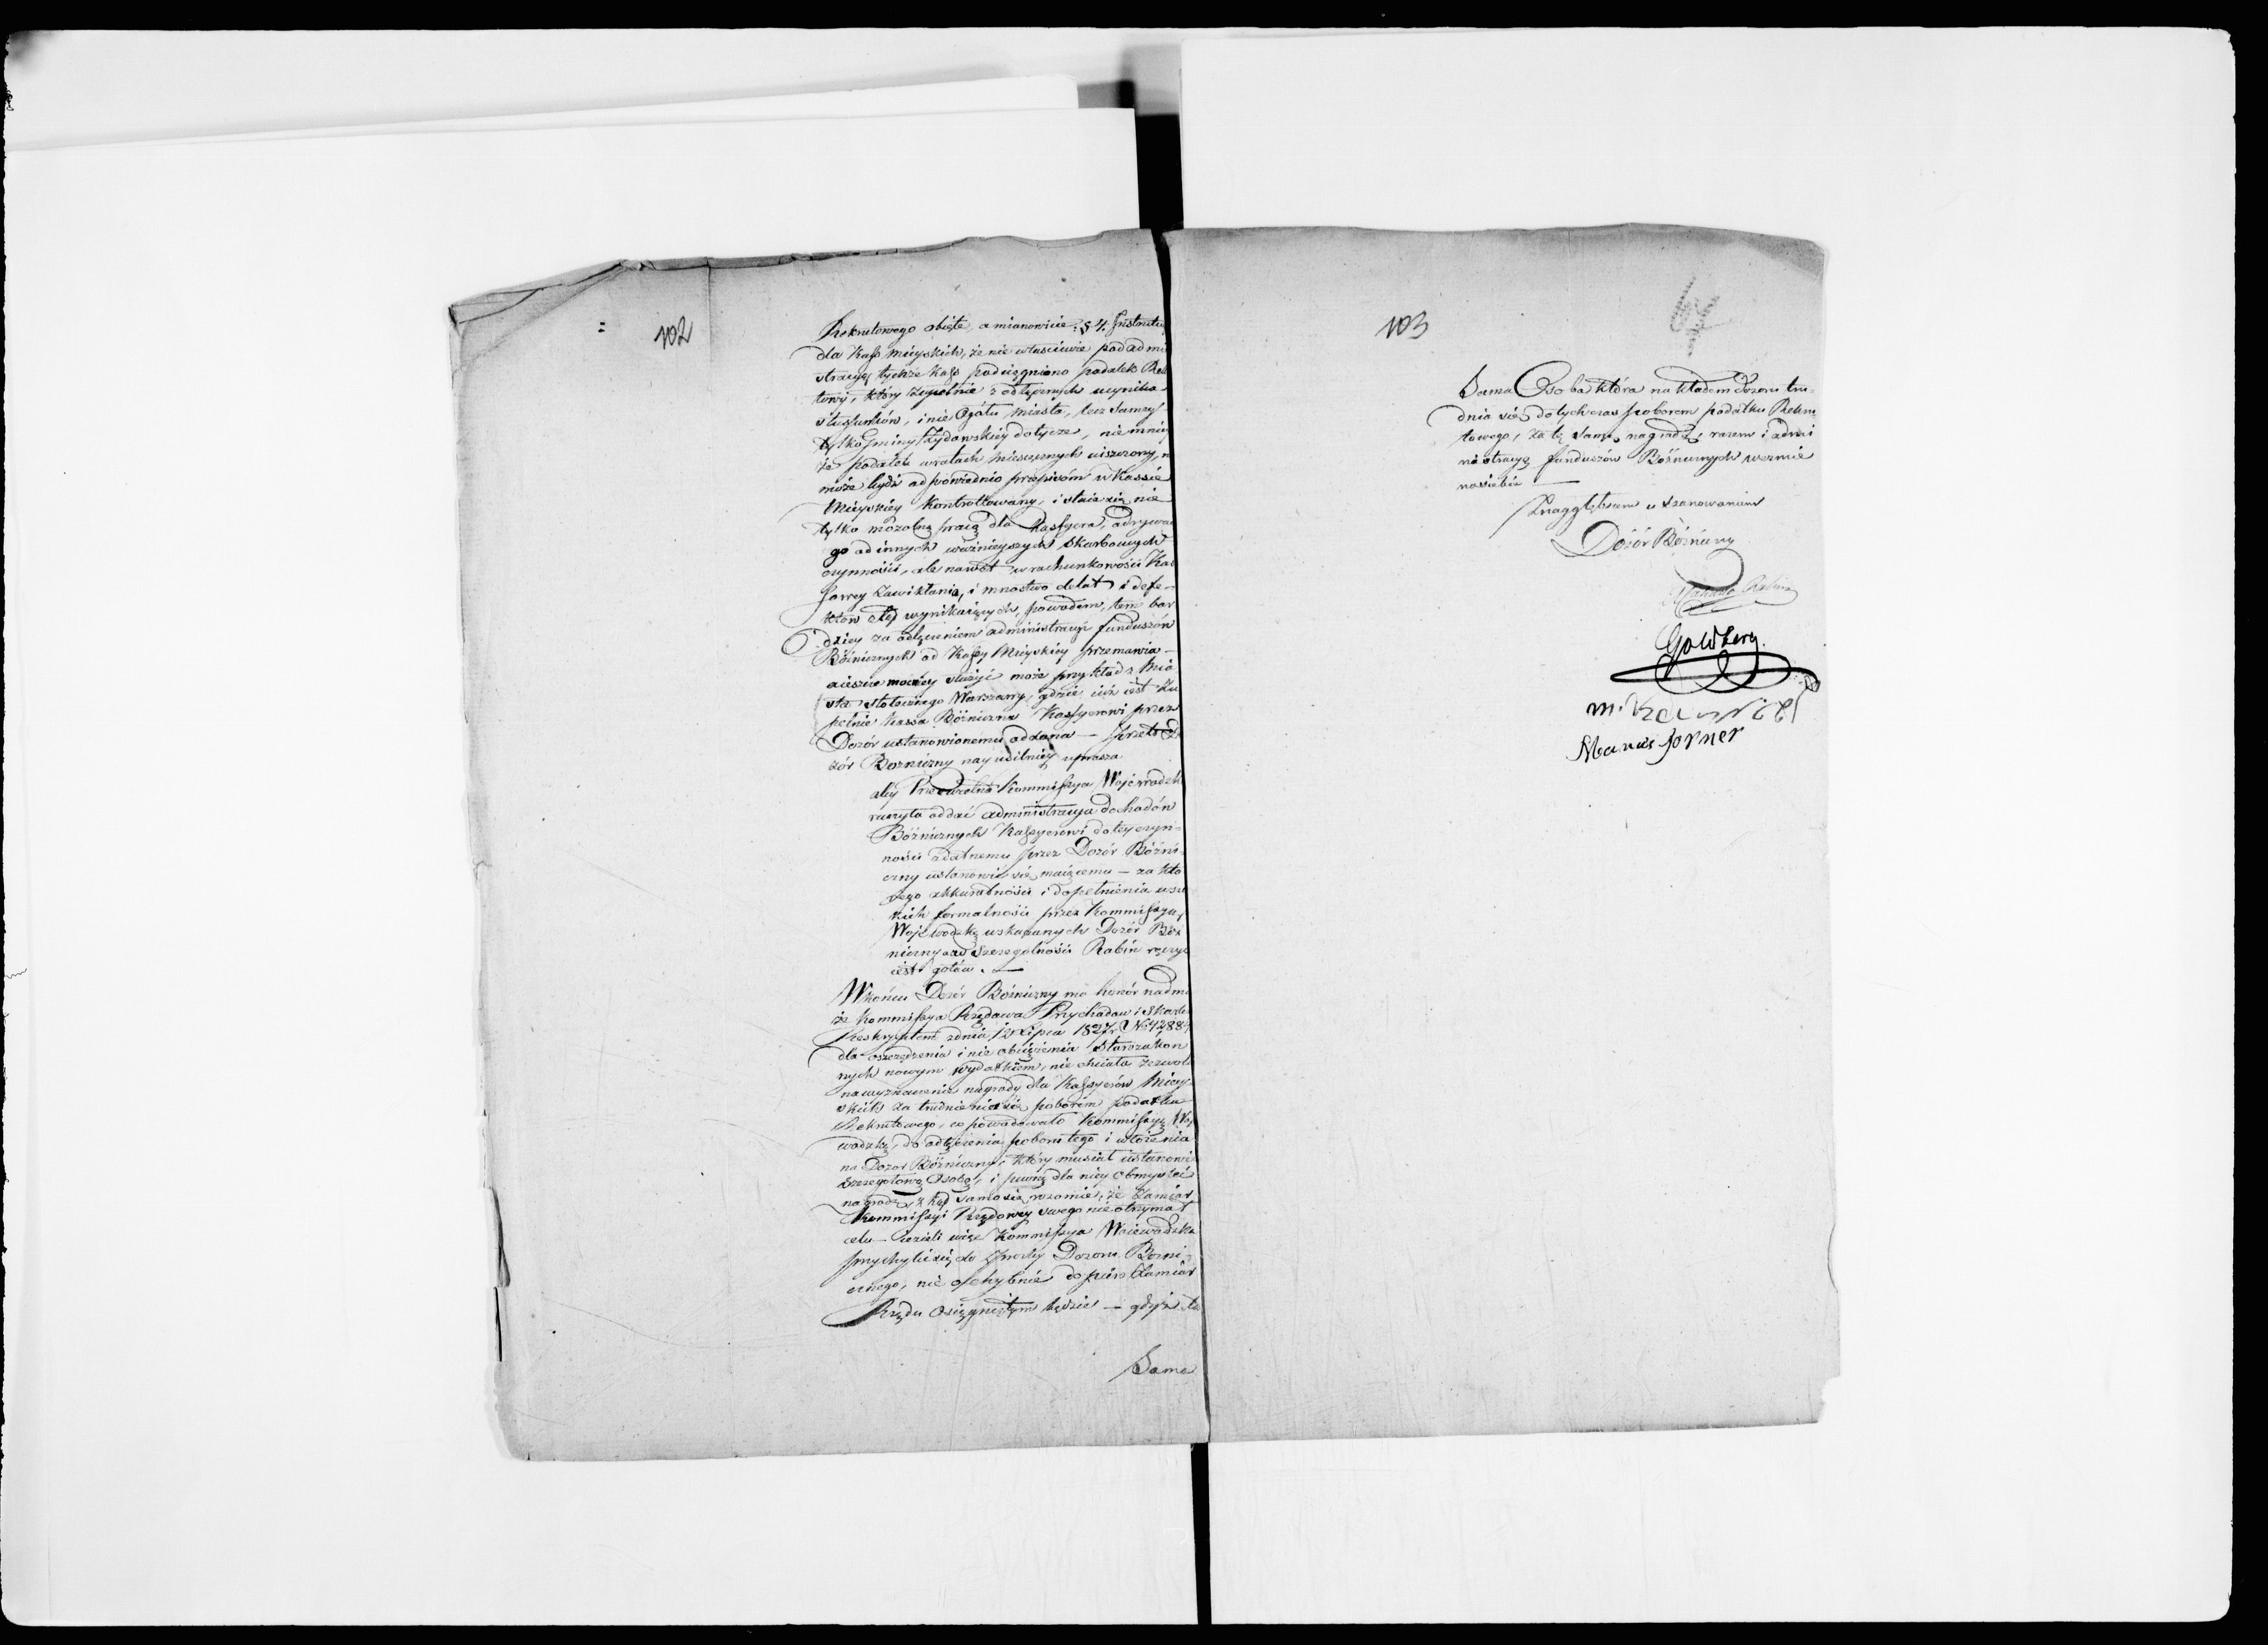 102
Rekrutowego objęte, a mianowicie: § 4. Instrukc
dla Kass Mieyskich, że nie właściwie pod admi
stracyę tychże Kass podciągniono podatek Rek
towy, który zupełnie z odłącznych wynika
stosunków, i nie Ogółu Miasta, lecz samey
tylko Gminy Żydowskiey dotycze, nie mniey
że podatek w ratach miesięcznych uiszczony, n
może bydź odpowiednio przepisom w Kassie
Mieyskiey Kontrollowany, i staie się nie
tylko mozolną pracą dla Kassyera, odrywa
go od innych ważnieyszych Skarbowych
czynności, ale nawet w rachunkowości Kas
sowey zawikłania, i mnóstwo delat i defe-
któw ztąd wynikaiących, powodem, tem bar
dziey za odłączeniem administracyi funduszów
Bóżnicznych od Kassy Mieyskiey przemawia -
a ieszcze mocniey służyć może przykład z Mia
sta stołecznego Warszawy, gdzie iuż iest zu
pełnie Kassa Bóżniczna Kassyerowi przez
Dozór ustanowionemu oddana — Przeto Do
zór Bozniczny nayusilniey uprasza
aby Prześwietna Kommissya Wojewódzk
raczyła oddać administracyą dochodów
Bóżnicznych Kassyerowi do tey czyn-
ności zdatnemu przez Dozór Bóżni-
czny ustanowić się maiącemu — za któ
rego akkuratności i dopełnienia wsze
kich formalności przez Kommissyą
Wojewodzką wskazanych Dozór Boż
niczny a w szczególności Rabin ręczyć
iest gotów. —
W końcu Dozór Bóżniczny ma honór nadmi
że Kommissya Rządowa Przychodów i Skarbu
Reskryptem z dnia 12 Lipca 1827 r. N. 42884
dla oszczędzenia i nie obciążenia Starozakon
nych nowym wydatkiem, nie chciała zezwoli
na wyznaczenie nagrody dla Kassyerów Miey-
skich za trudnienie się poborem podatku
Rekrutowego, co powodowało Kommissyą Wo
wodzką, do odłączenia poboru tego i włożenia
na Dozor Bóżniczny, który musiał ustanowi
szczegółową Osobę, i pewną dla niey obmyśleć
nagrodę, z kąd samo się rozumie, że zamiar
Kommissyi Rządowey swego nie otrzymał
celu — Jeżeli więc Kommissya Wojewodzka
przychyli się do Prośby Dozoru Bozni-
cznego, nie ochybnie dopiero zamiar
Rządu Osiągniętym będzie — gdyż ta
Sama
103
Sama Osoba która nakładem Dozoru tru-
dnia się dotychczas poborem podatku Rekru
towego, za tę samę nagrodę, razem i admi
nistracyę funduszów Bóżnicznych weźmie
na siebie —
Z nagłębszem uszanowaniem
Dozór Bóżniczny
Rabin
Goldberg
Marcus Forner